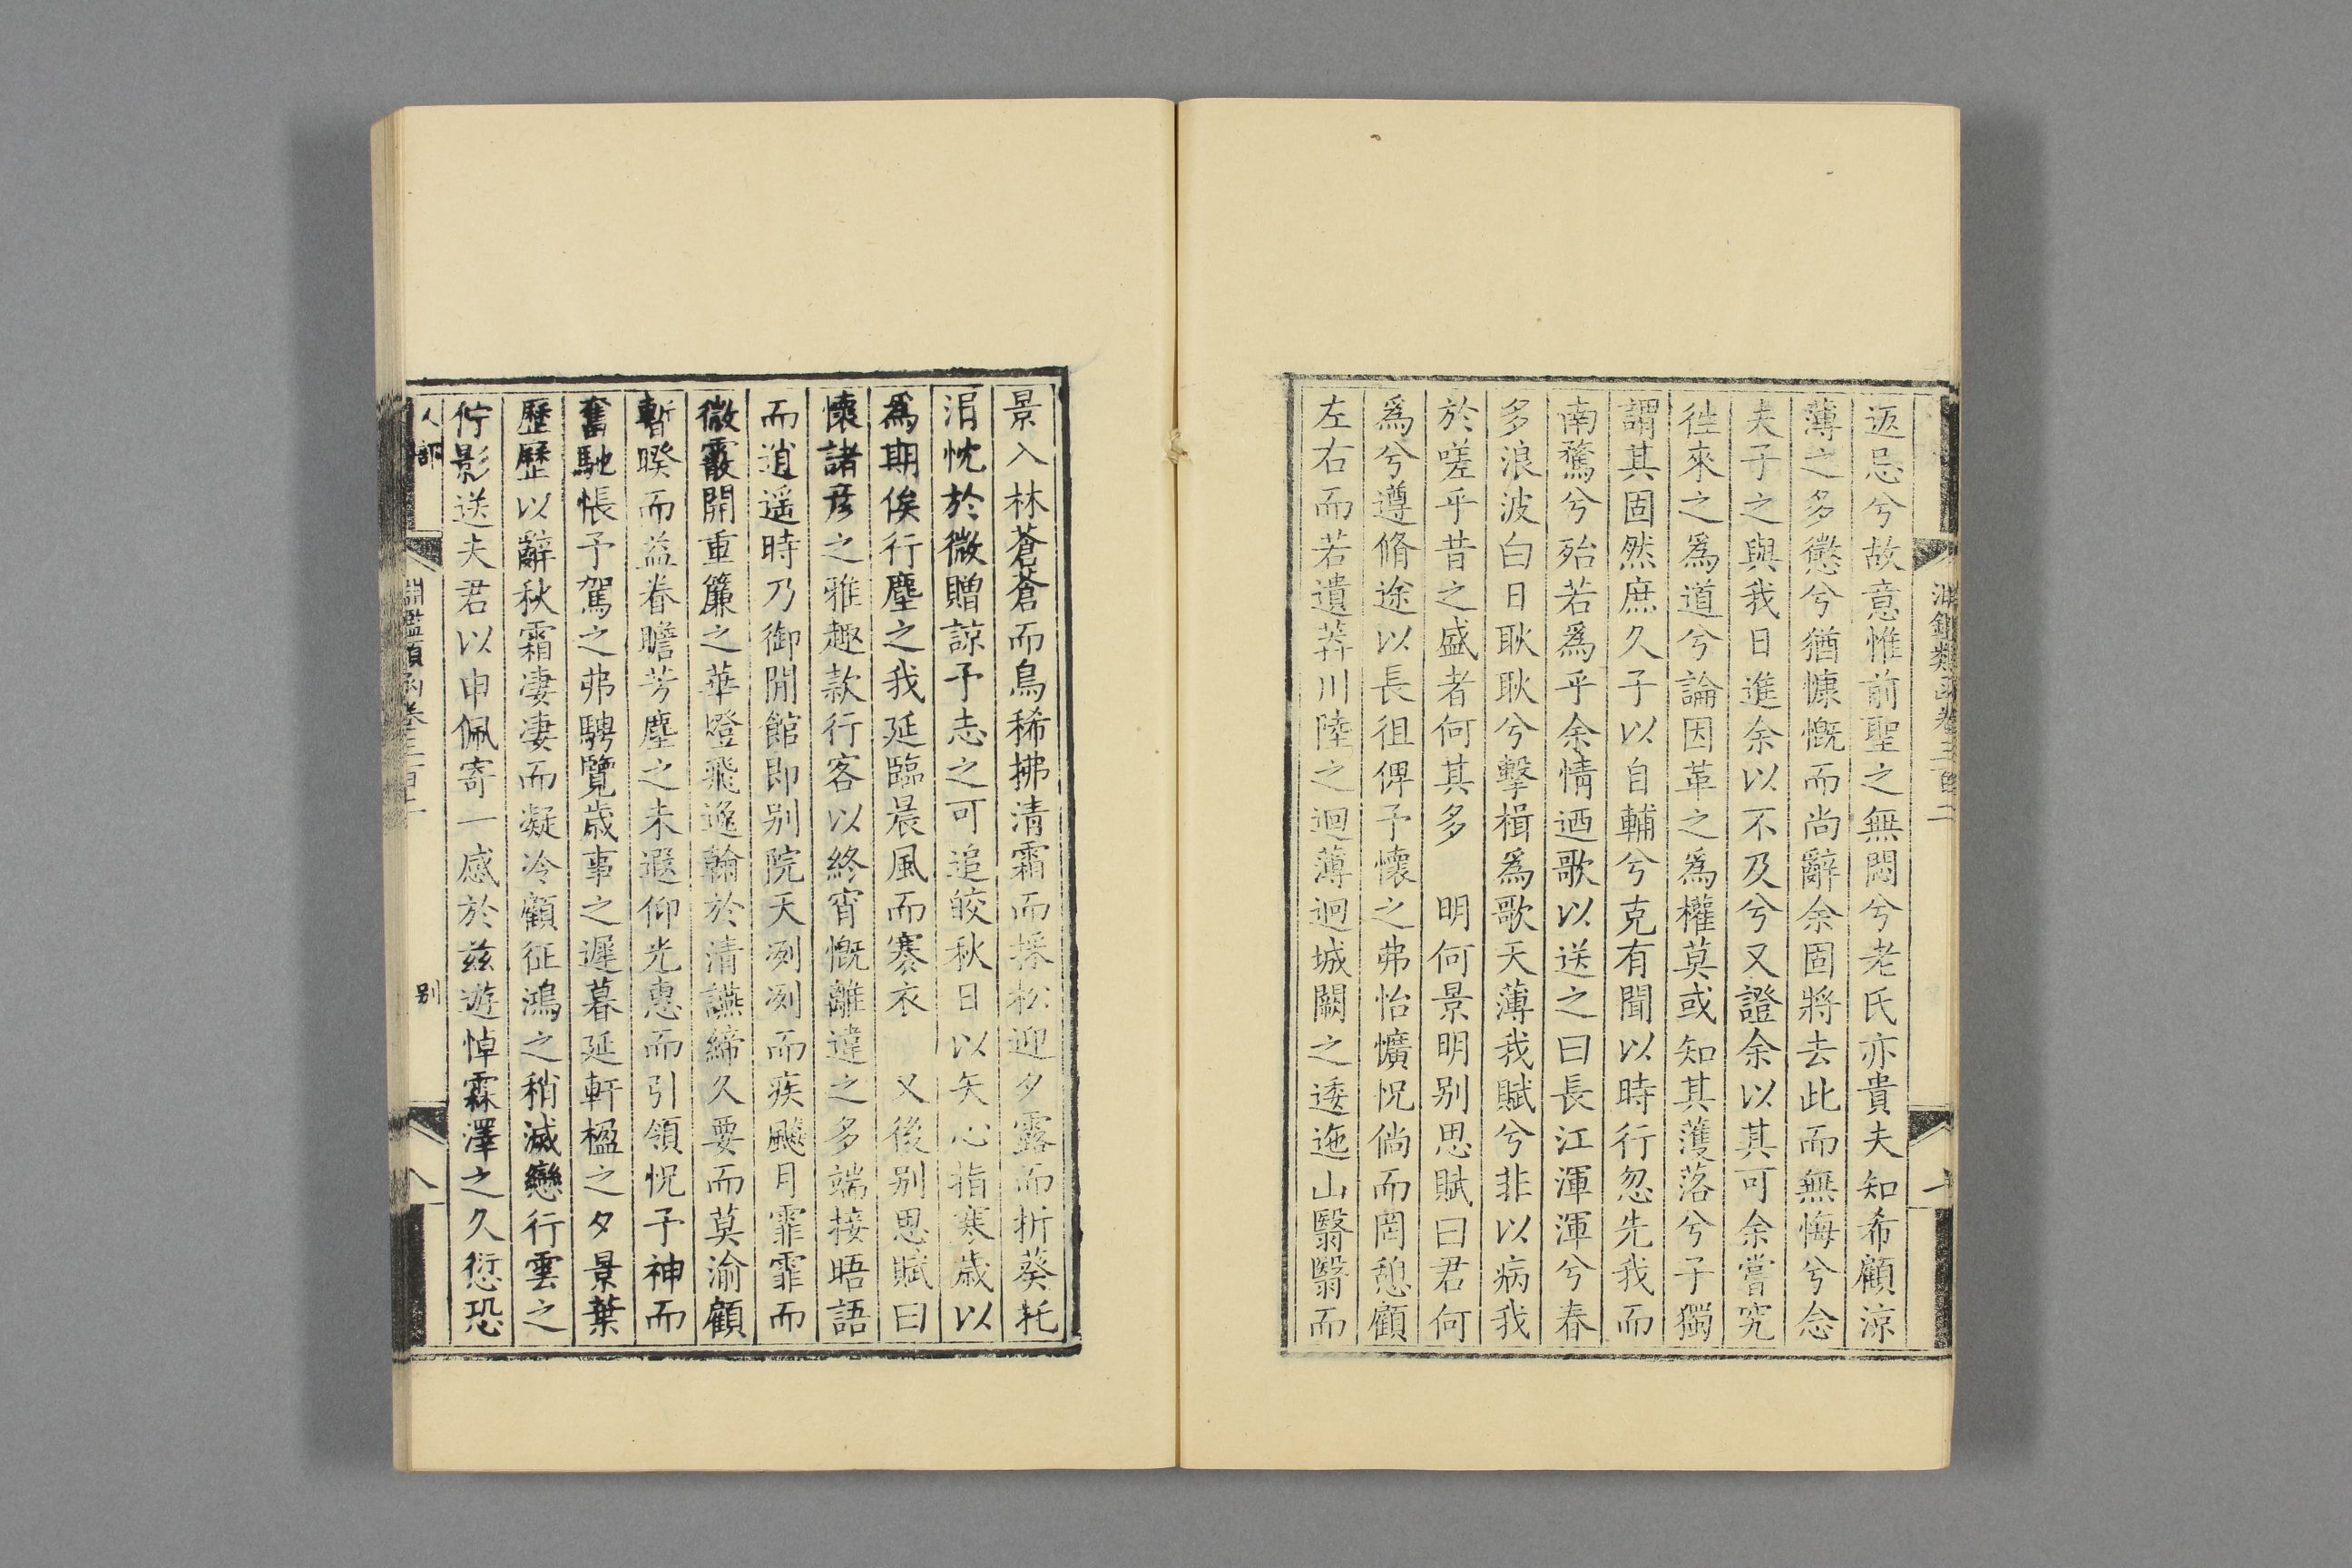 淵鑑類函卷三百二
返忌兮故意惟前聖之無悶兮老氏亦貴夫知希顧涼
薄之多愆兮猶慷慨而尚辭余固將去此而無悔兮念
夫子之與我日進余以不及兮又證余以其可余嘗究
徃來之為道兮論因革之爲權莫或知其濩落兮子獨
謂其固然庶久子以自輔兮克有聞以時行忽先我而
南騖兮殆若爲乎余情迺歌以送之曰長江渾渾兮春
多浪波白日耿耿兮擊楫爲歌天薄我賦兮非以病我
於嗟乎昔之盛者何其多 明何景明别思賦曰君何
爲兮遵脩途以長徂俾予懷之弗怡懭怳倘而罔憩顧
左右而若遺莽川陸之迴薄迴城闕之逶迤山翳翳而
景入林蒼蒼而鳥稀拂清霜而搴松迎夕露而折葵托
涓忱於微贈諒予志之可追皎秋日以矢心指寒歲以
爲期俟行塵之我延臨晨風而褰衣 又後别思賦曰
懷諸彦之雅趣款行客以終宵慨離違之多端接晤語
而逍遥時乃御閒館即别院天冽冽而疾飈月霏霏而
微霰開重簾之華燈飛逸翰於清讌締久要而莫渝顧
暫暌而益眷瞻芳塵之未遐仰光惠而引領怳予神而
奮馳悵予駕之弗騁覽歲事之遲暮延軒楹之夕景葉
歷歷以辭秋霜凄凄而凝冷顧征鴻之稍滅戀行雲之
佇影送夫君以申佩寄一感於兹遊悼霖澤之久愆恐
人部 淵鑑類函卷三百二 别 八